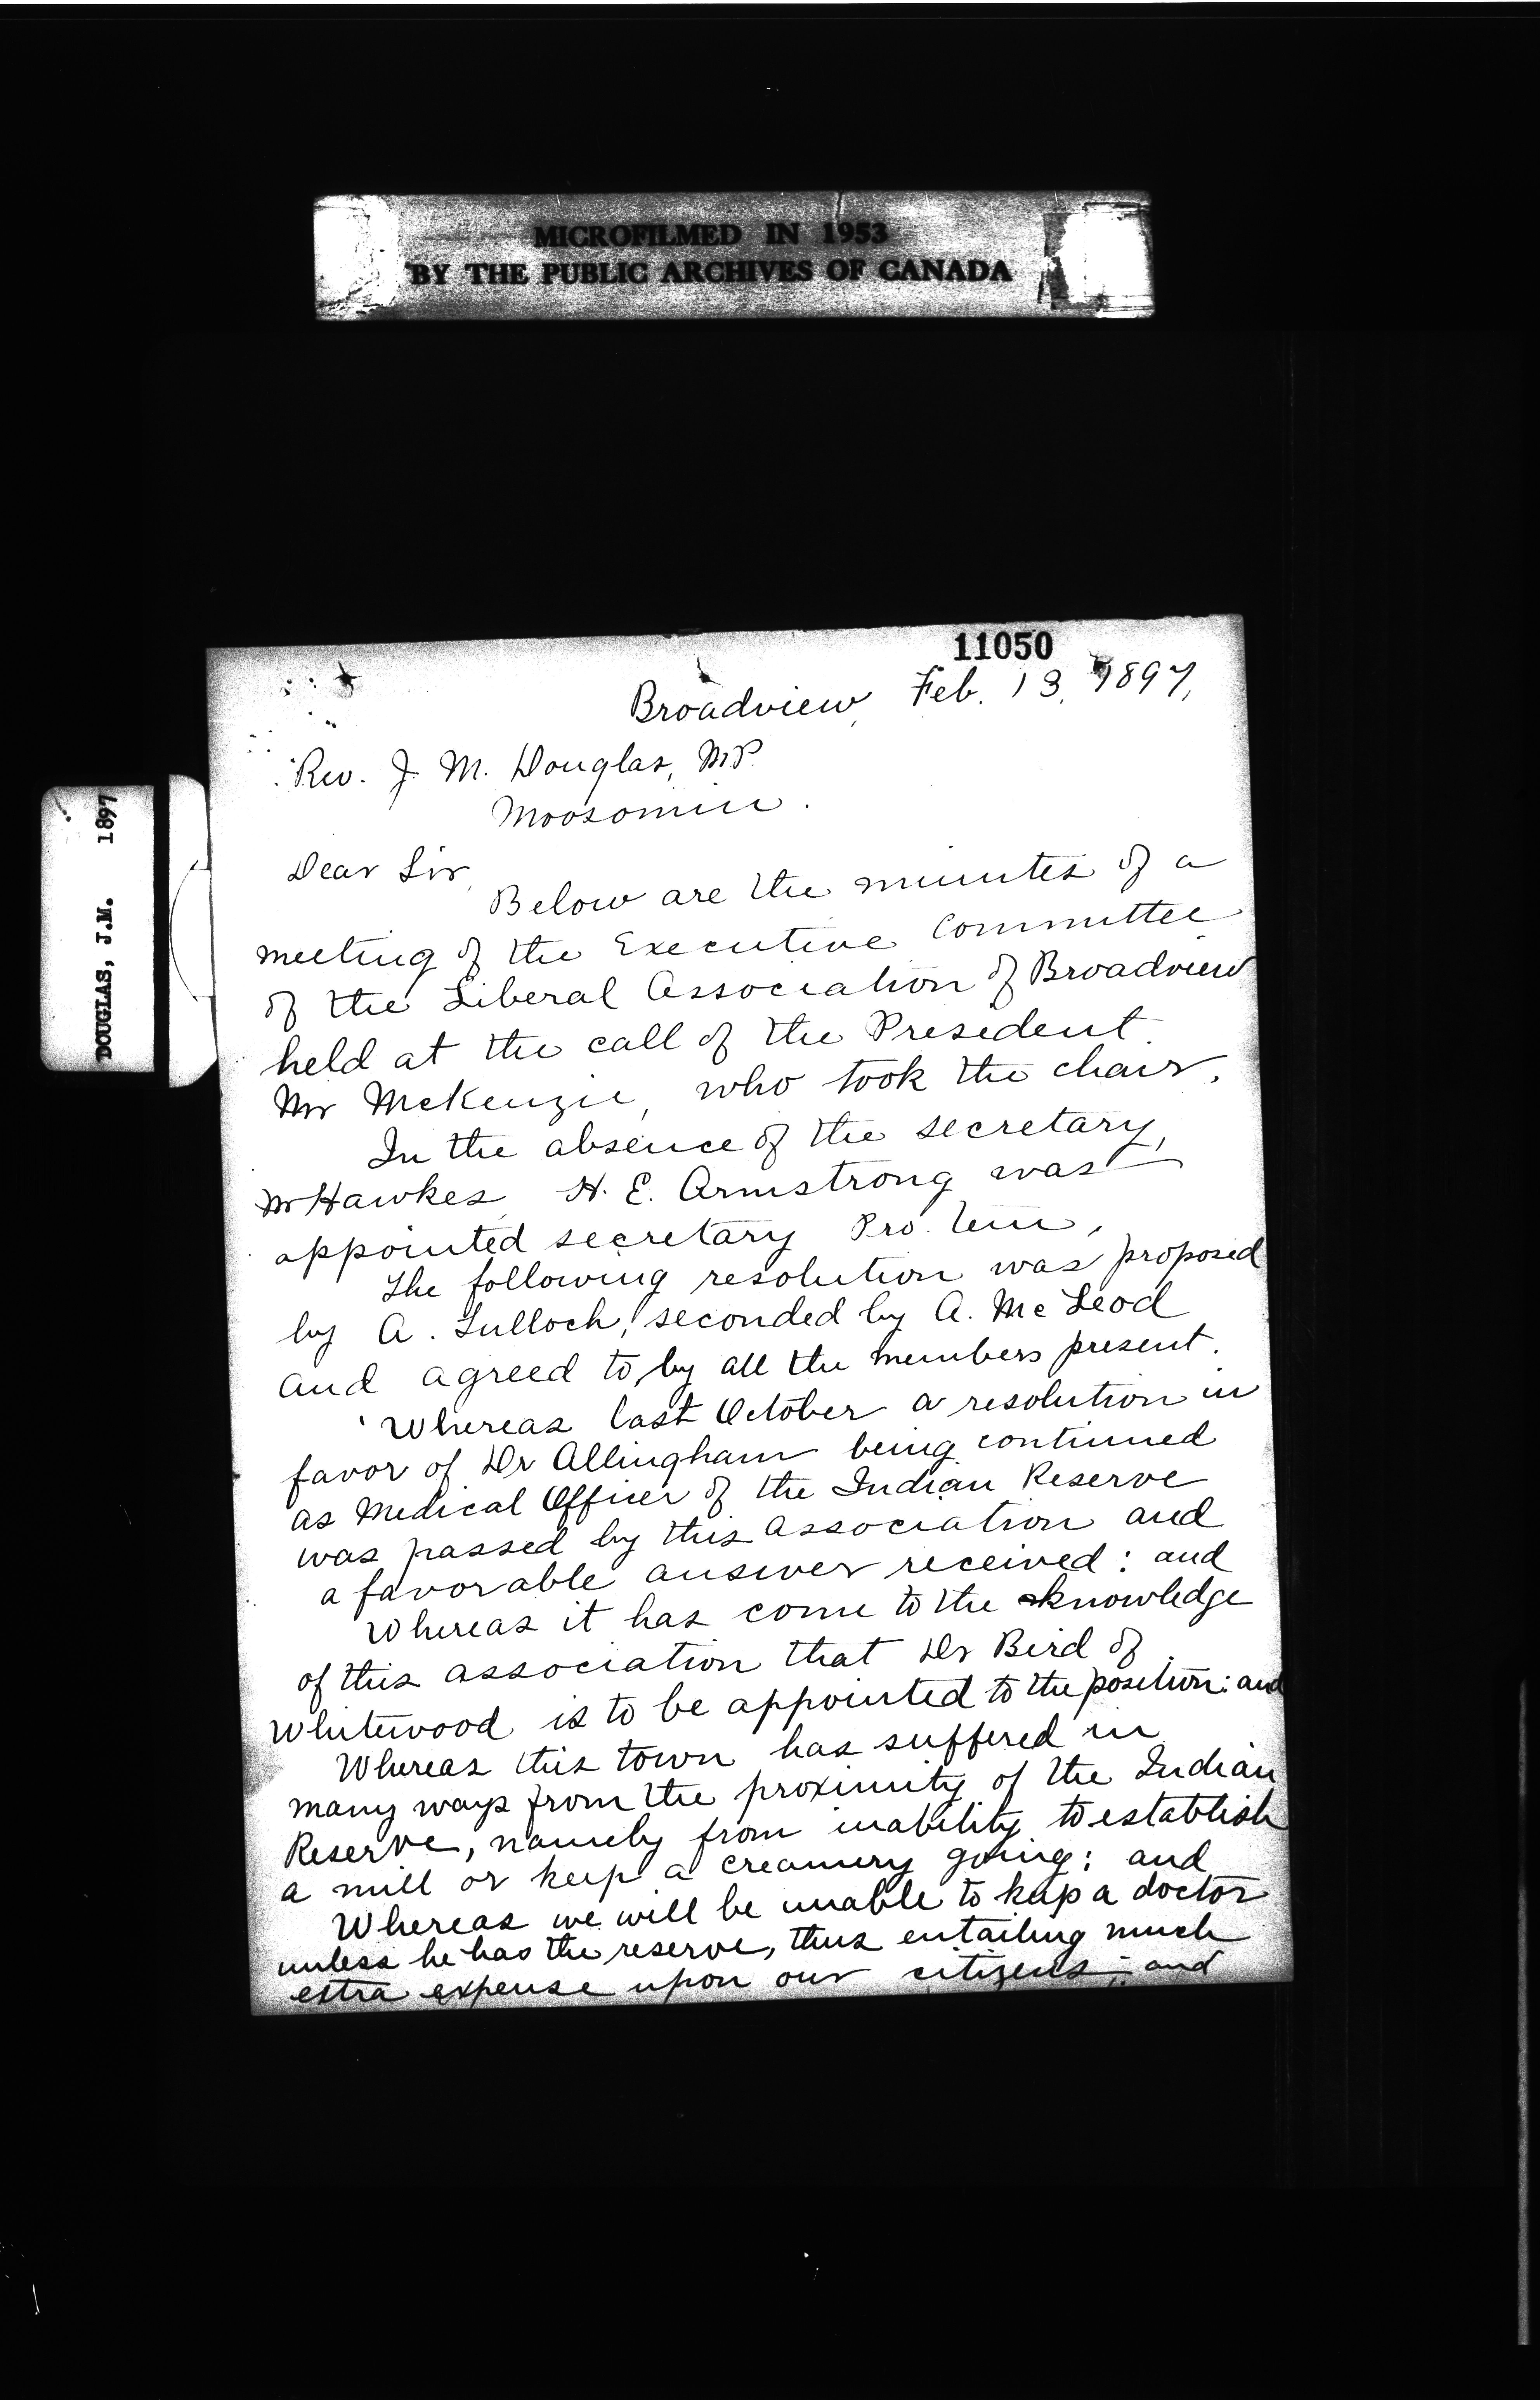 MICROFILMED IN 1953
BY THE PUBLIC ARCHIVES OF CANADA
DOUGLAS, J.M. 1897
11050
Broadview, Feb. 13, 1897,
Rev. J. M. Douglas, M.P.
Moosomin.
Dear Sir,
Below are the minutes of a
meeting of the Executive Committee
of the Liberal Association of Broadview
held at the call of the President
Mr McKenzie, who took the chair.
In the absence of the secretary,
Mr Hawkes, H. E. Armstrong was
appointed secretary Pro. tem,
The following resolution was proposed
by A. Tulloch, seconded by A. McLeod
and agreed to by all the members present.
'Whereas last October a resolution in
favor of Dr Allingham being continued
as Medical Officer of the Indian Reserve
was passed by this association and
a favorable answer received: and
Whereas it has come to the knowledge
of this association that Dr Bird of
Whitewood is to be appointed to the position: and
Whereas this town has suffered in
many ways from the proximity of the Indian
Reserve, namely from inability to establish
a mill or keep a creamery going: and
Whereas we will be unable to keep a doctor
unless he has the reserve, thus entailing much
extra expense upon our citizens; and